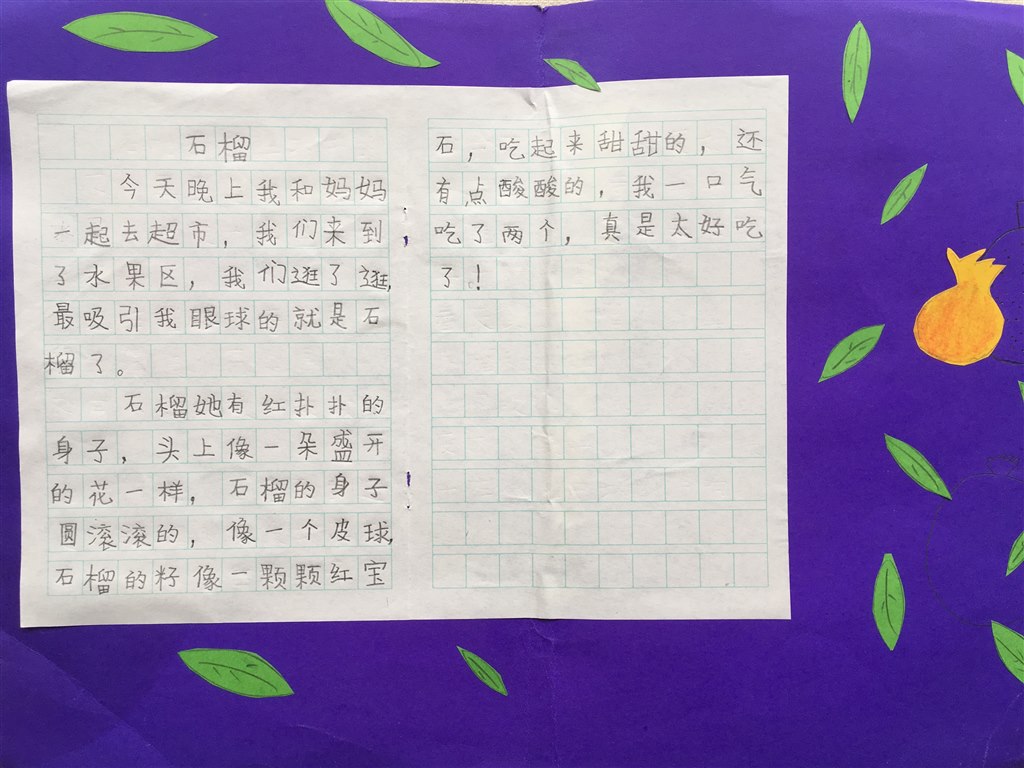 石榴
今天晚上我和妈妈
一起去超市，我们来到
了水果区，我们逛了逛，
最吸引我眼球的就是石
榴了。
石榴她有红扑扑的
身子，头上像一朵盛开
的花一样，石榴的身子
圆滚滚的，像一个皮球，
石榴的籽像一颗颗红宝
石，吃起来甜甜的，还
有点酸酸的，我一口气
吃了两个，真是太好吃
了！